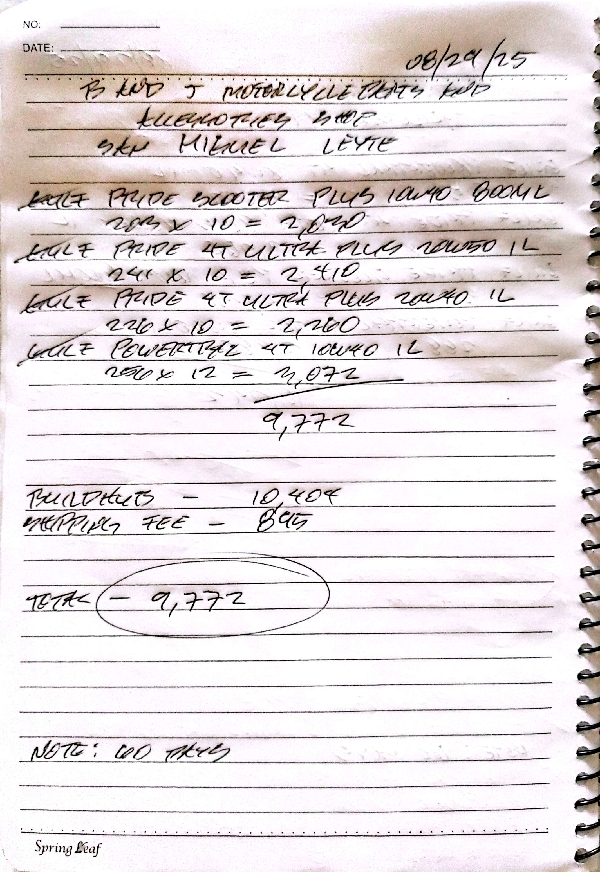 NO:
DATE:
08/29/25
B AND J MOTORCYCLE PARTS AND
ACCESSORIES SHOP
SAN MIGUEL LEYTE
GULF PRIDE SCOOTER PLUS 10W40 800ML
203 x 10 = 2,030
GULF PRIDE 4T ULTRA PLUS 20W50 1L
241 x 10 = 2,410
GULF PRIDE 4T ULTRA PLUS 20W40 1L
226 x 10 = 2,260
GULF POWERTRAC 4T 10W40 1L
256 x 12 = 3,072
9,772
- 10,404
SHIPPING FEE - 895
TOTAL - 9,772
NOTE: 60 DAYS
Spring Leaf